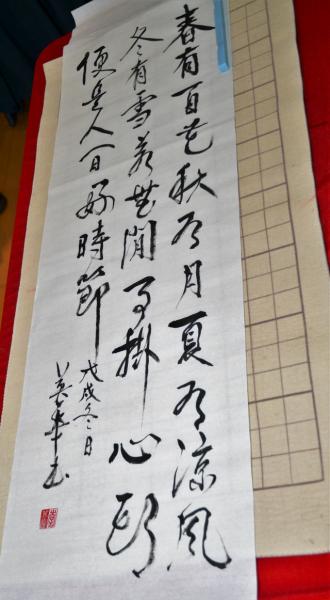 春有百花秋有月夏有涼風
冬有雪若無閒事掛心頭
便是人間好時節
戊戌冬日